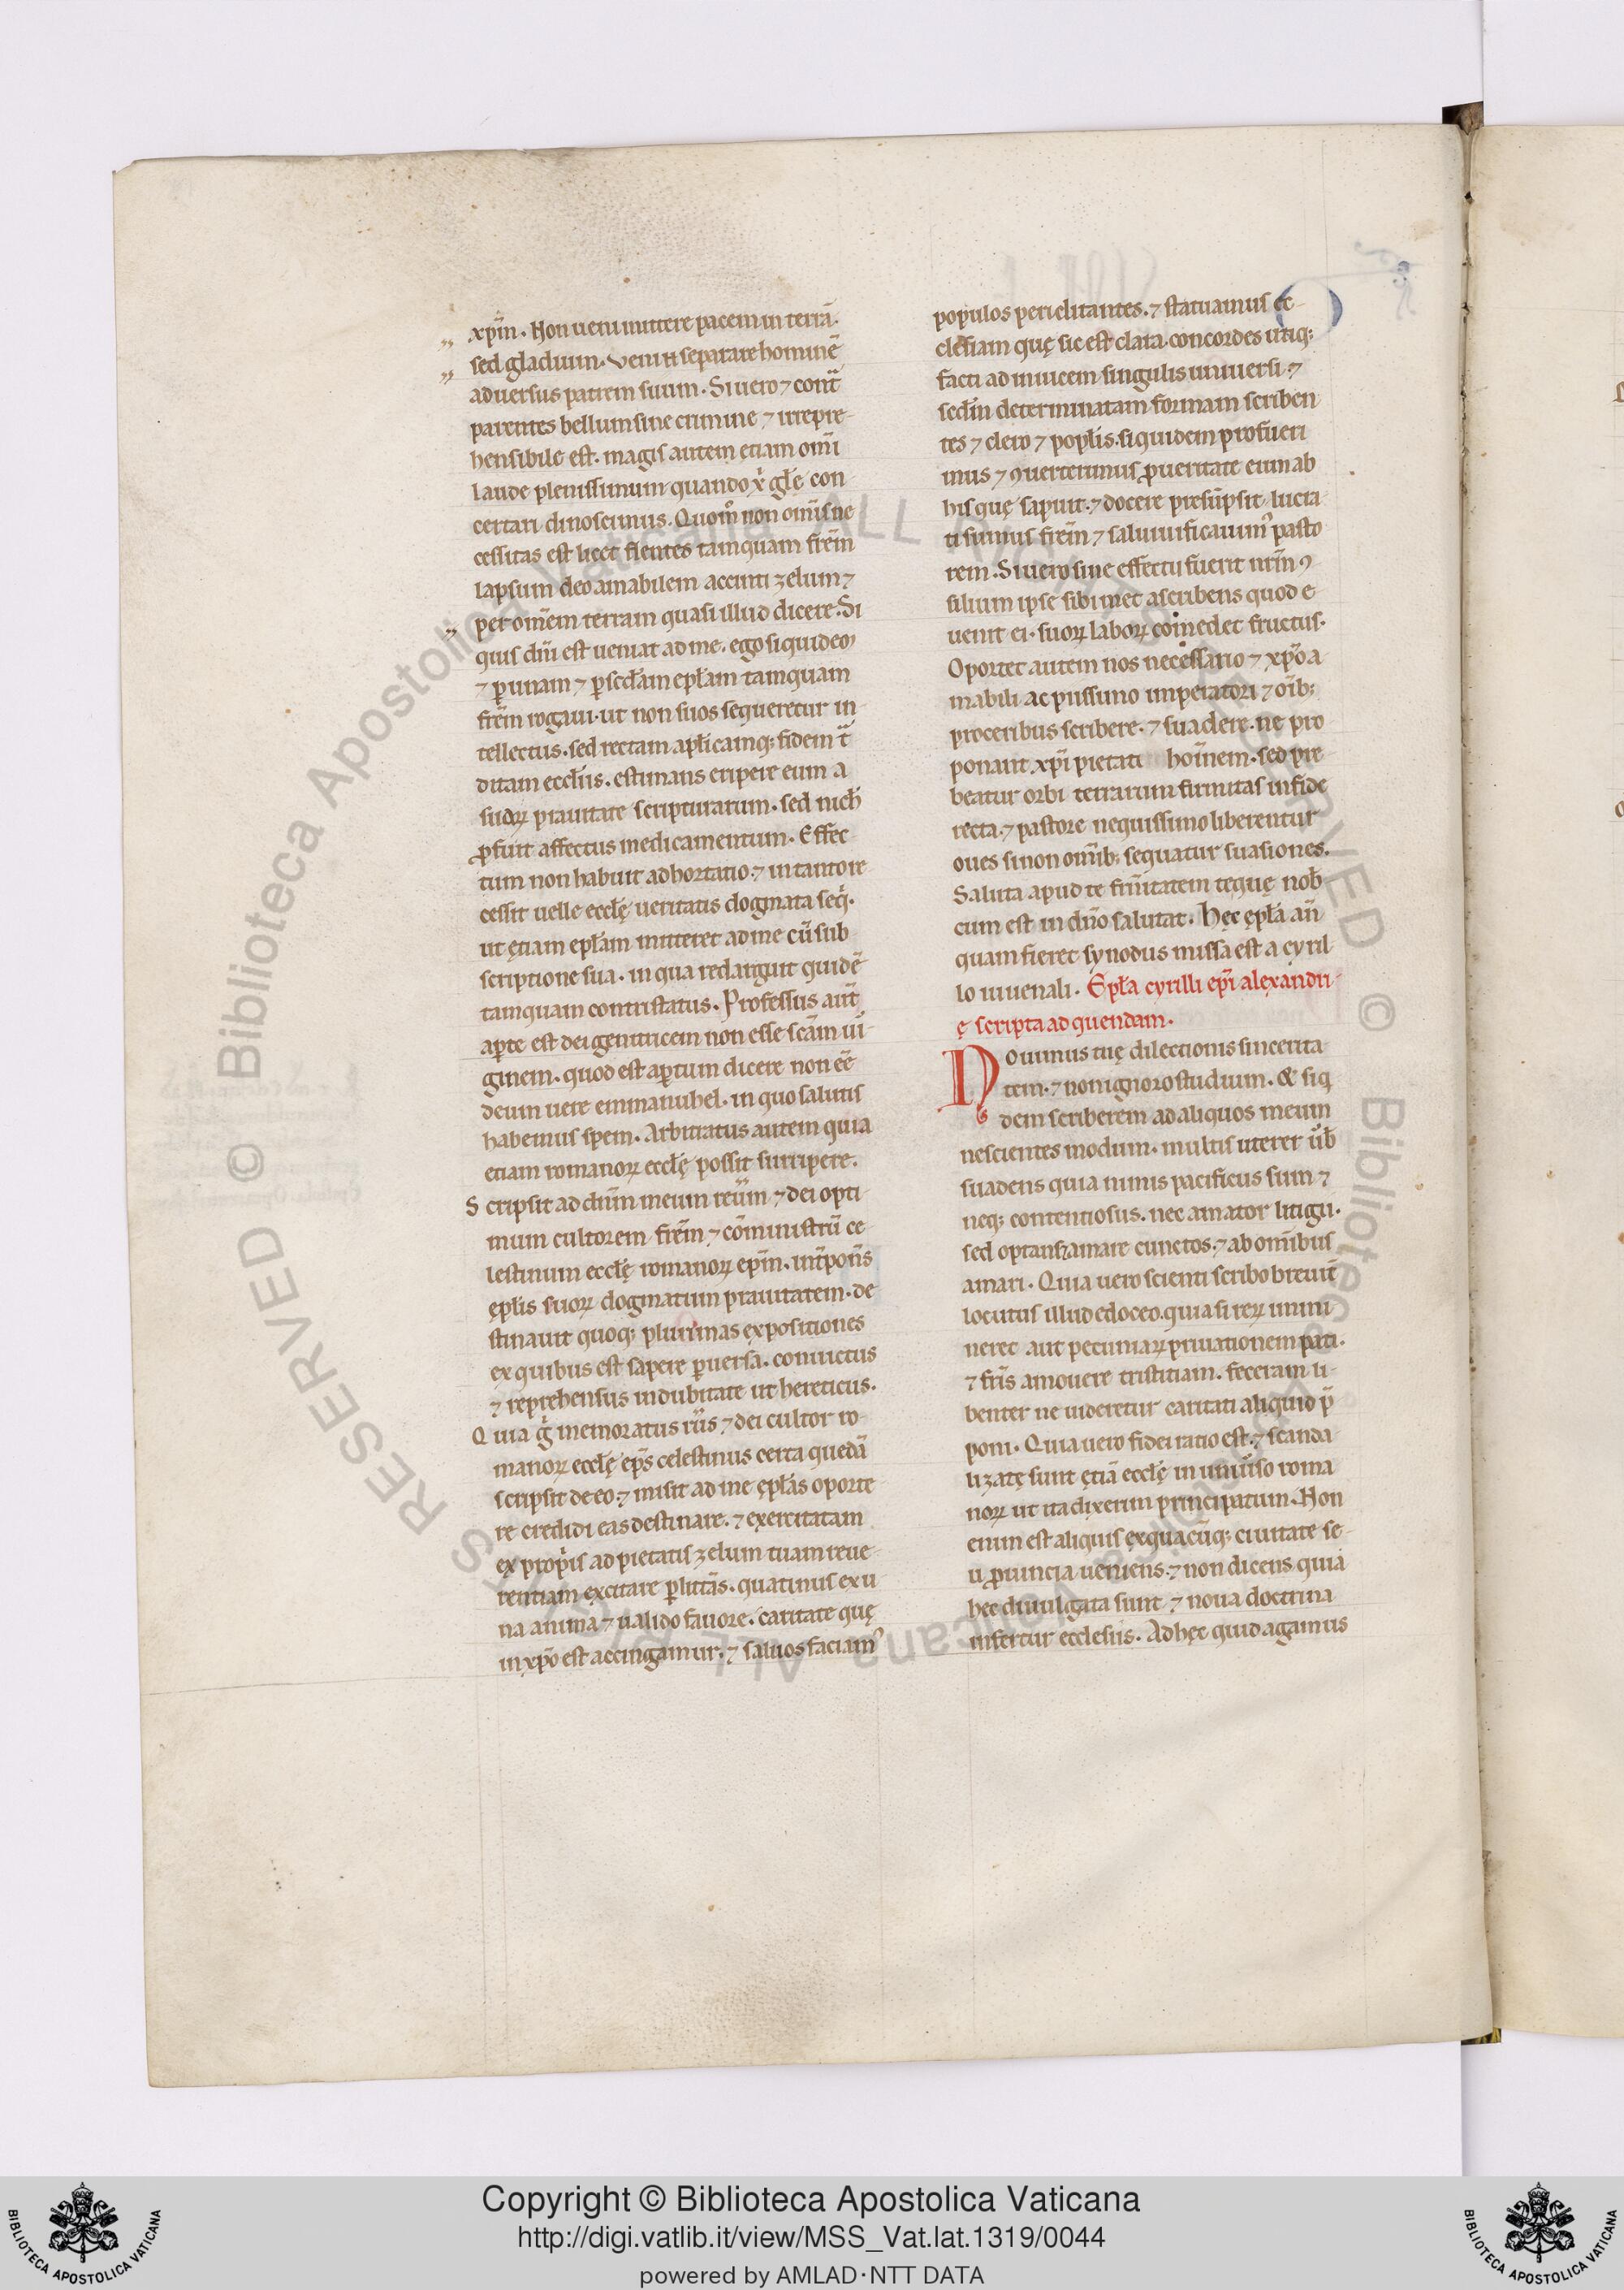 xp̄m. Non ueni mittere pacem in terrā.
sed gladium. Veni n̄ separare hominē
aduersus patrem suum. Si uero ⁊ cont̄
parentes bellum sine crimine ⁊ irrepre-
hensibile est. magis autem etiam om̄i
laude plenissimum quando x̄ gl̄ę con
certari dinoscimus. Quom̄ non om̄is ne
cessitas est licet flentes tamquam fr̄em
lapsum deo amabilem accinti zelum ⁊
per om̄em terram quasi illud dicere. Si
quis dn̄i est ueniat ad me. ego siquidem
⁊ ꝑ unam ⁊ ꝑ scd̄am epl̄am tamquam
fr̄em rogaui. ut non suos sequeretur in
tellectus. sed rectam apl̄icamq; fidem t̄
ditam eccl̄iis. estimans eripere eum a
suoꝝ prauitate scripturarum. sed nich̄
ꝓfuit affectus medicamentum. Effec
tum non habuit adhortatio. ⁊ in tanto re
cessit uelle eccl̄ę ueritatis dogmata seq̄.
ut ętiam epl̄am mitteret ad me cū sub
scriptione sua. in qua redarguit quidē
tamquam contristatus. Professus aut̄
aꝑte est dei genitricem non esse scām ui-
ginem. quod est aꝑtum dicere non ēē
deum uere emmanuhel. in quo salutis
habemus spem. Arbitratus autem quia
etiam romanoꝝ eccl̄ę possit surripere.
Scripsit ad dn̄m meum reūm ⁊ dei opti
mum cultorem fr̄em ⁊ cōministrū ce
lestinum eccl̄ę romanoꝝ ep̄m. int̄pon̄s
ępl̄is suoꝝ dogmatum prauitatem. de
stinauit quoq; plurimas expositiones
ex quibus est sapere ꝑuersa. conuictus
⁊ reprehensus indubitate ut hereticus.
Quia g̊ memoratus rūs ⁊ dei cultor ro-
manoꝝ eccl̄ę ep̄s celestinus certa quedā
scripsit de eo. ⁊ misit ad me ępl̄as oporte
re credidi eas destinare. ⁊ exercitatam
ex propriis ad pietatis zelum tuam reue-
rentiam excitare ꝑ litt̄as. quatinus ex u
na anima ⁊ ualido fauore. caritate quę
in xp̄o est accingamur. ⁊ saluos faciam᷒
populos periclitantes. ⁊ statuamus ec-
clesiam quę sic est clara. concordes utiq;
facti ad inuicem singulis uniuersi. ⁊
scd̄m determinatam formam scriben
tes ⁊ clero ⁊ popl̄is. siquidem profueri
mus ⁊ ꝯuerterimus ꝓ ueritate eum ab
his quę sapuit. ⁊ docere presūpsit. lucra
ti sumus fr̄em ⁊ saluificauim᷒ pasto
rem. Si uero sine effectu fuerit nr̄m ꝯ
silium ipse sibimet ascribens quod e
uenit ei. suoꝝ laboꝝ comedet fructus.
Oportet autem nos necessario ⁊ xp̄o a
mabili ac piissimo imperatori ⁊ om̄ib;
proceribus scribere. ⁊ suadere. ne pro
ponant xp̄i pietati hoīnem. sed pre
beatur orbi terrarum firmitas in fide
recta. ⁊ pastore nequissimo liberentur
oues si non om̄ib; sequatur suasiones.
Saluta apud te fr̄nitatem tequę nob̄
cum est in dn̄o salutat. Hęc ępl̄a an̄
quam fieret synodus missa est a cyril
lo iuuenali. Epl̄a cyrilli ep̄i alexandri-
ę scripta ad quendam.
Nouimus tuę dilectionis sincerita
tem. ⁊ non ignoro studium. & siq
dem scriberem ad aliquos meum
nescientes modum. multis uterer ūb̄
suadens quia nimis pacificus sum ⁊
neq; contentiosus. nec amator litigii.
sed optans amare cunctos. ⁊ ab om̄ibus
amari. Quia uero scienti scribo breuit̄
locutus illud edoceo. quia si reꝝ immi
neret aut pecuniaꝝ priuationem pati.
⁊ fr̄is amouere tristitiam. feceram li-
benter ne uideretur caritati aliquid p̄
poni. Quia uero fidei ratio est. ⁊ scanda
lizatę sunt ętiā eccl̄ę in uniūso roma
noꝝ ut ita dixerim principatum. Non
enim est aliquis ex quacūq; ciuitate se
u ꝓuincia ueniens. ⁊ non dicens quia
hec diuulgata sunt ⁊ noua doctrina
infertur ecclesiis. Ad hęc quid agamus
Copyright © Biblioteca Apostolica Vaticana
http://digi.vatlib.it/view/MSS_Vat.lat.1319/0044
powered by AMLAD·NTT DATA